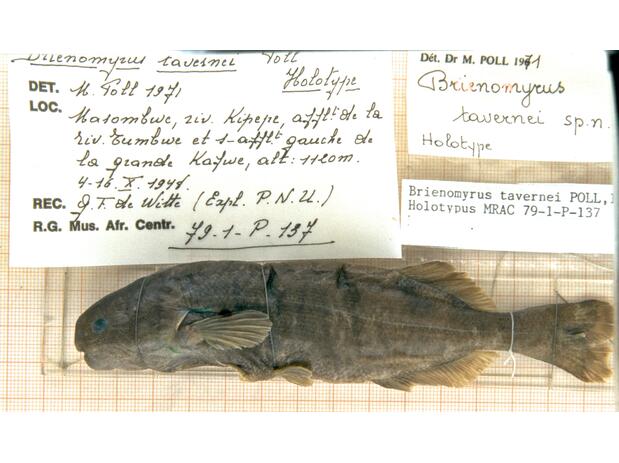 Brienomyrus tavernei Poll
Holotype
DET. M. Poll 1971
LOC. Masombwe, riv. Kipepe, afflt de la
riv. Lumbwe et s-afflt gauche de
la grande Kafwe, alt: 1120m.
4-16 X. 1948.
REC. G.F. de Witte (Expl. P.N.U.)
R.G. Mus. Afr. Centr. 79-1-P-137
Dét. Dr M. POLL 1971
Brienomyrus
tavernei sp.n.
Holotype
Brienomyrus tavernei POLL,
Holotypus MRAC 79-1-P-137